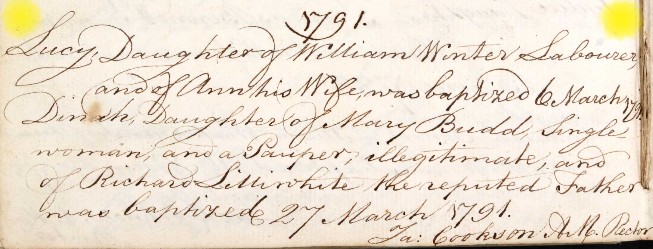 1791.
Lucy, Daughter of William Winter Labourer,
and of Ann his Wife, was baptized 6 March 1791.
Dinah, Daughter of Mary Budd, Single
woman, and a Pauper, illegitimate, and
of Richard Littlewhite the reputed Father
was baptized 27 March 1791.
Ja: Cookson A.M. Rector